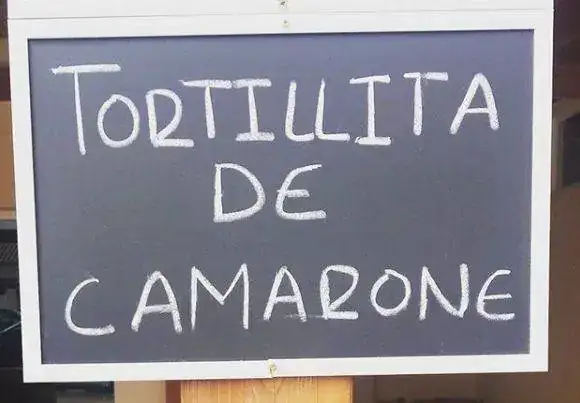 TORTILLITA
DE
CAMARONE